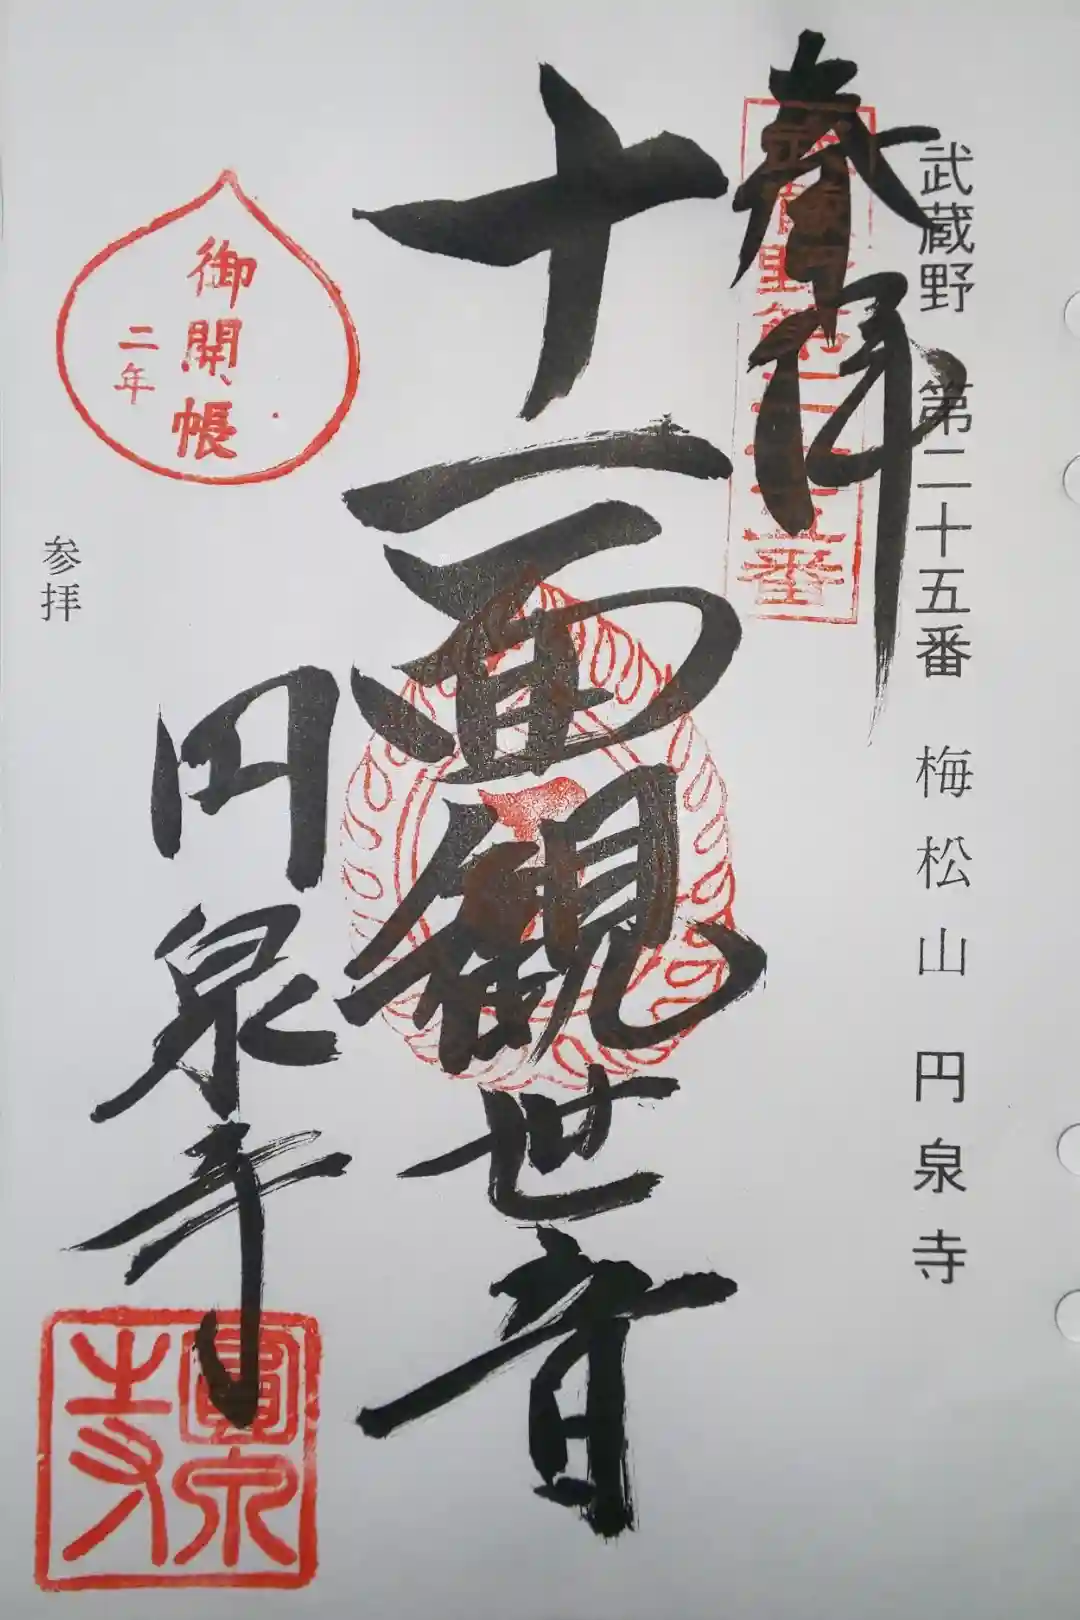 武蔵野 第二十五番 梅松山 円泉寺
奉拝
武蔵野第二十五番
十一面観世音
円泉寺
御開帳
二年
参拝
圓泉寺